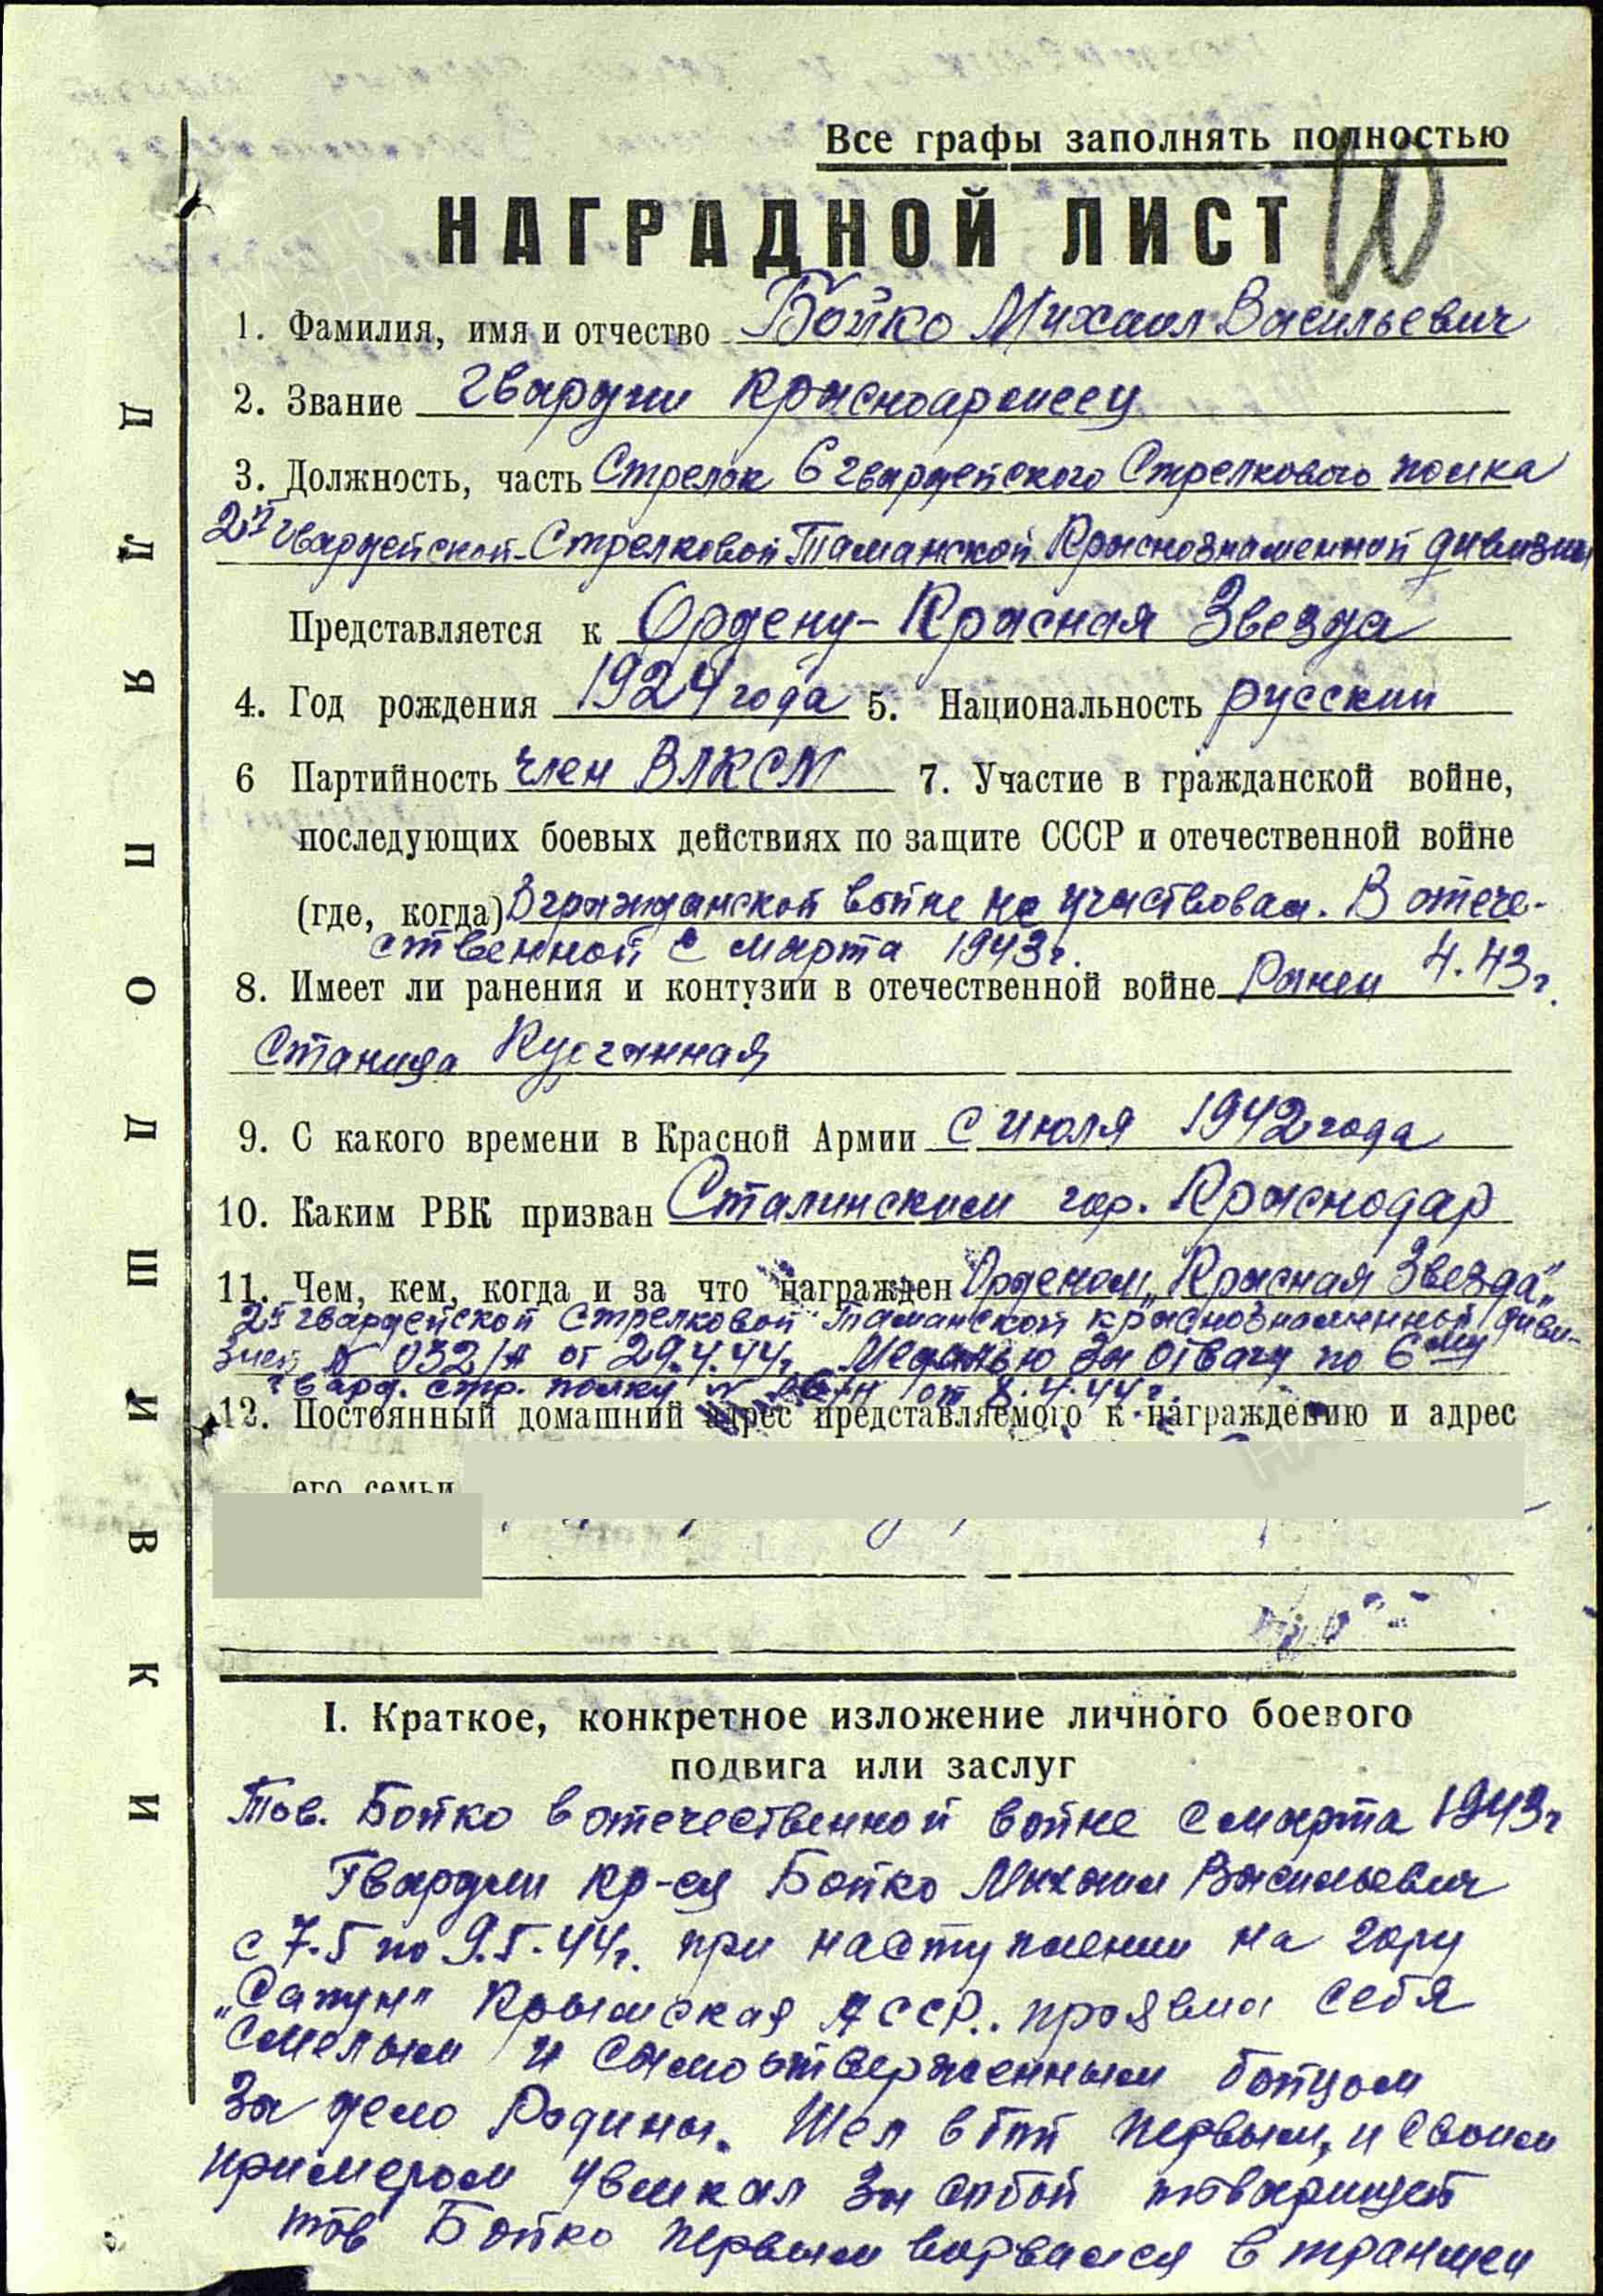 Все графы заполнять полностью
НАГРАДНОЙ ЛИСТ
10
1. Фамилия, имя и отчество Бойко Михаил Васильевич
2. Звание Гвардии Красноармеец
3. Должность, часть Стрелок 6 гвардейского Стрелкового полка
2й гвардейской Стрелковой Таманской Краснознаменной дивизии
Представляется к Ордену - Красная Звезда
4. Год рождения 1924 года 5. Национальность русский
6 Партийность член ВЛКСМ 7. Участие в гражданской войне,
последующих боевых действиях по защите СССР и отечественной войне
(где, когда) В гражданской войне не участвовал. В отече-
ственной с марта 1943 г.
8. Имеет ли ранения и контузии в отечественной войне Ранен 4.43 г.
Станица Курганная
9. С какого времени в Красной Армии с июля 1942 года
10. Каким РВК призван Сталинским гор. Краснодар
11. Чем, кем, когда и за что награжден Орденом „Красная Звезда"
2й гвардейской Стрелковой Таманской краснознаменной диви-
зией № 032/н от 29.4.44г. Медалью За Отвагу по 6му
гвард. стр. полку № от 8.4.44г.
12. Постоянный домашний адрес представляемого к награждению и адрес
его семьи
I. Краткое, конкретное изложение личного боевого
подвига или заслуг
Тов. Бойко в отечественной войне с марта 1943г
Гвардии кр-ец Бойко Михаил Васильевич
с 7.5 по 9.5.44г. при наступлении на гору
„Сапун" Крымская АССР.. проявил себя
смелым и самоотверженным бойцом
за дело Родины. Шел в бой первым, и своим
примером увлекал за собой товарищей
тов Бойко первым ворвался в траншеи
ДЛЯ ПОДШИВКИ